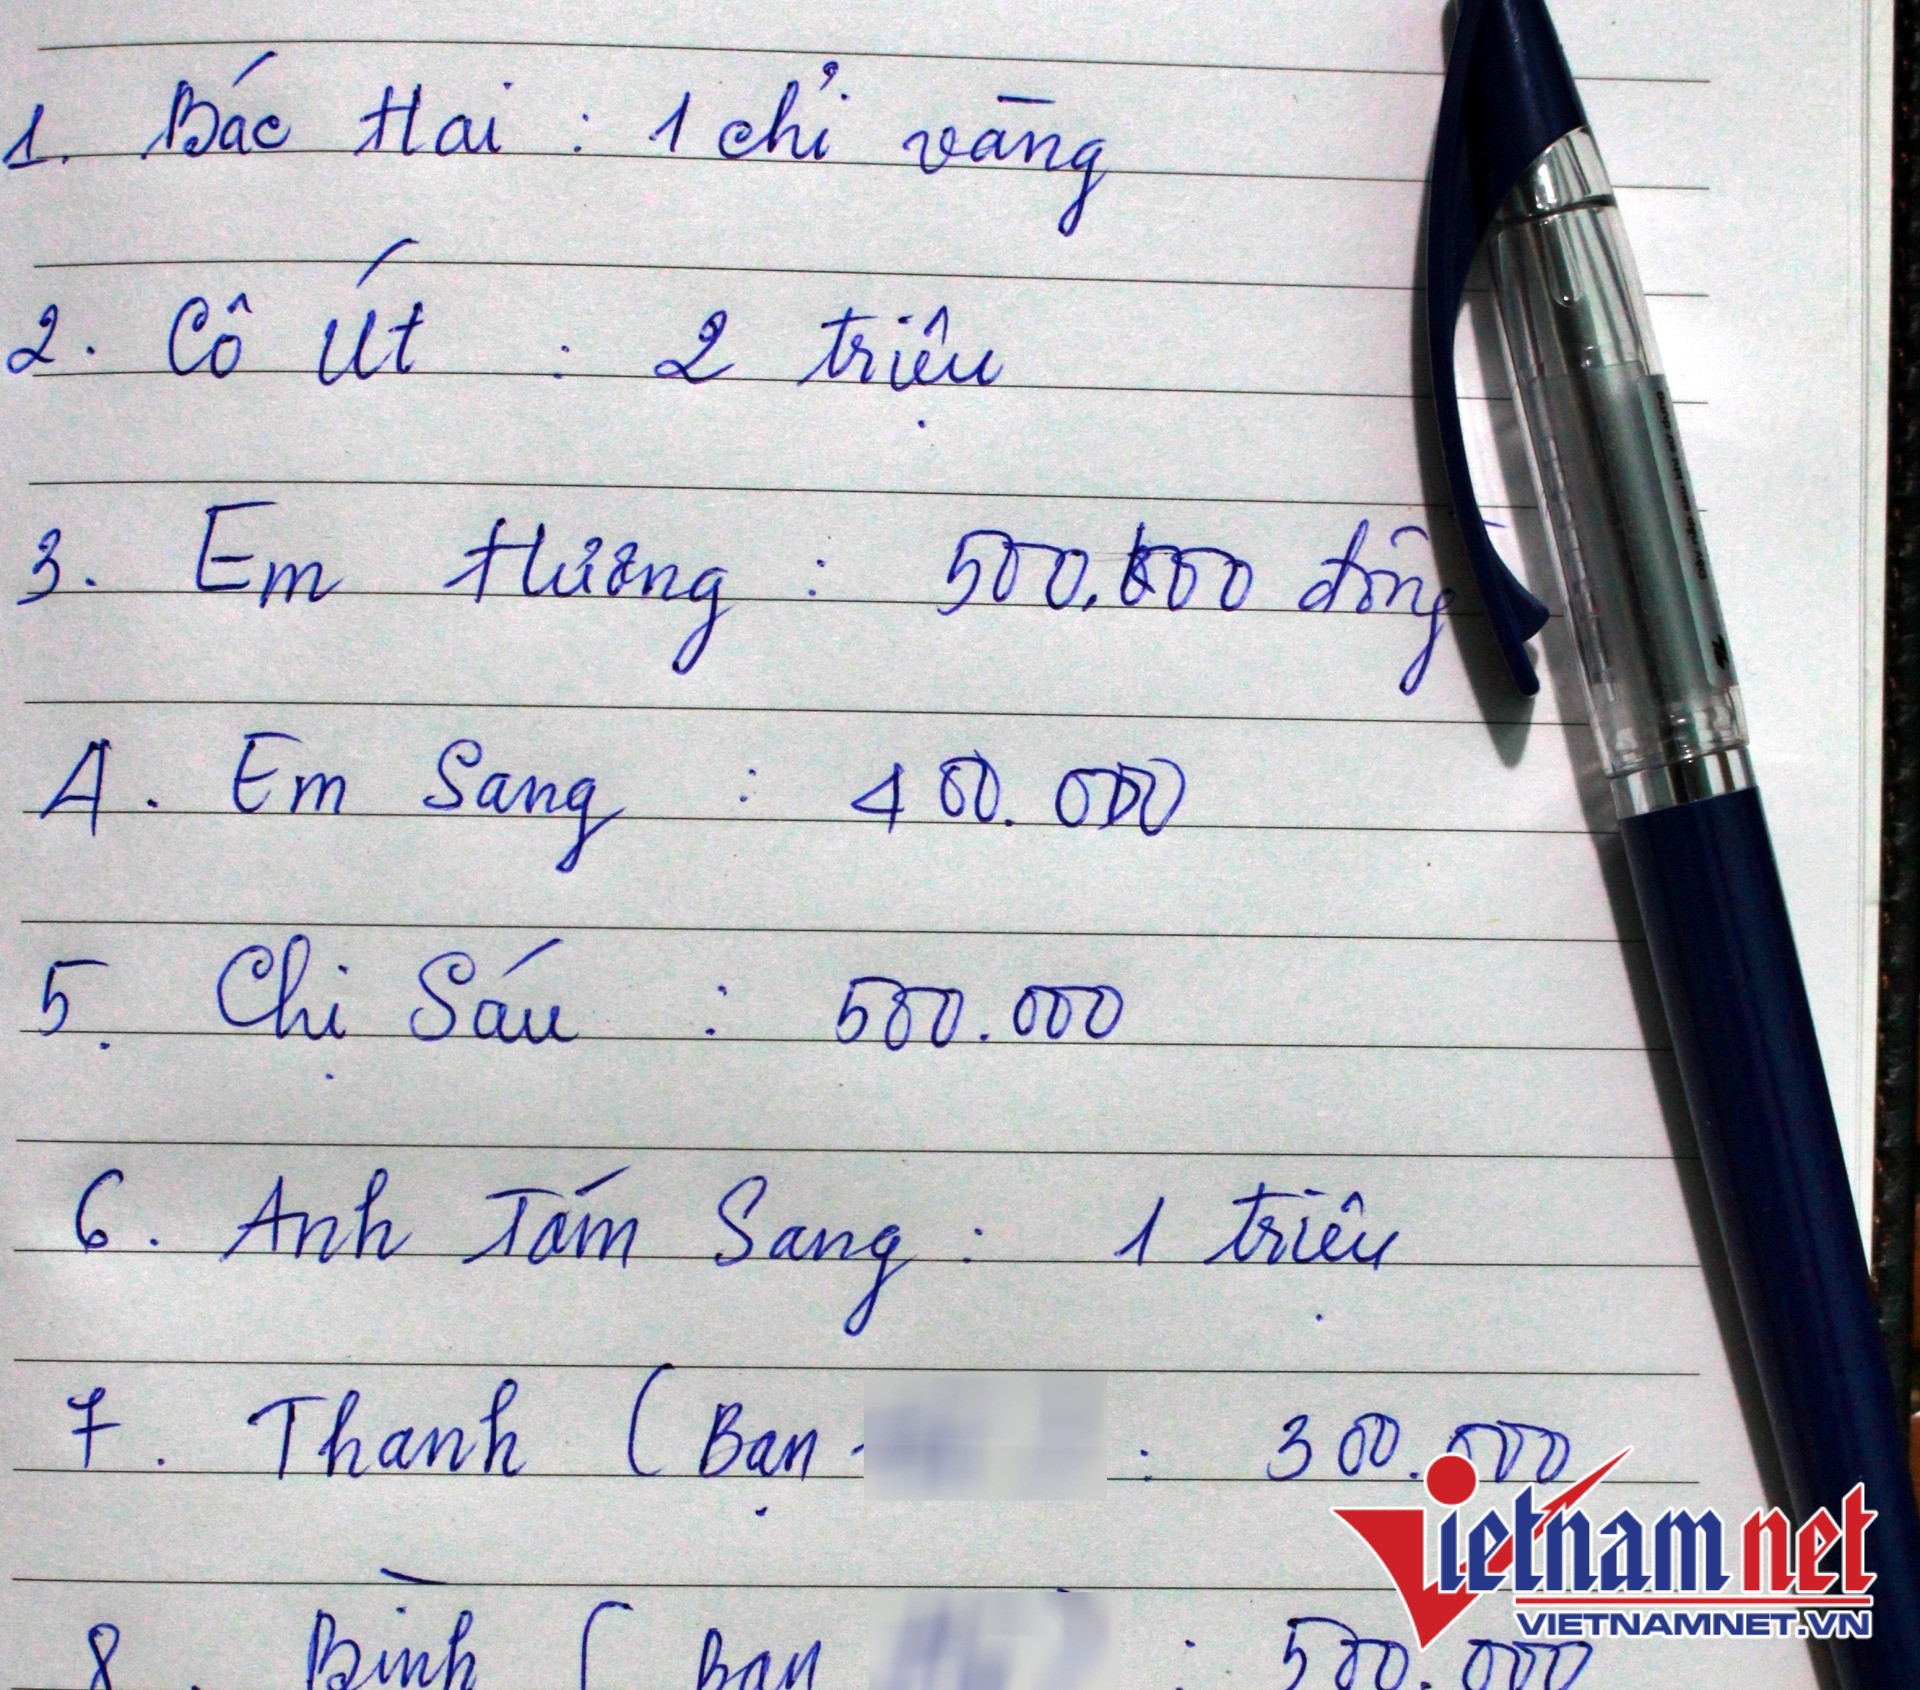 1. Bác Hai : 1 chỉ vàng
2. Cô Út : 2 triệu
3. Em Hương : 500.000 đồng
4. Em Sang : 400.000
5. Chị Sáu : 500.000
6. Anh Tám Sang : 1 triệu
7. Thanh ( Bạn : 300.000
8. Bình ( Bạn ) : 500.000
Vietnamnet
VIETNAMNET.VN